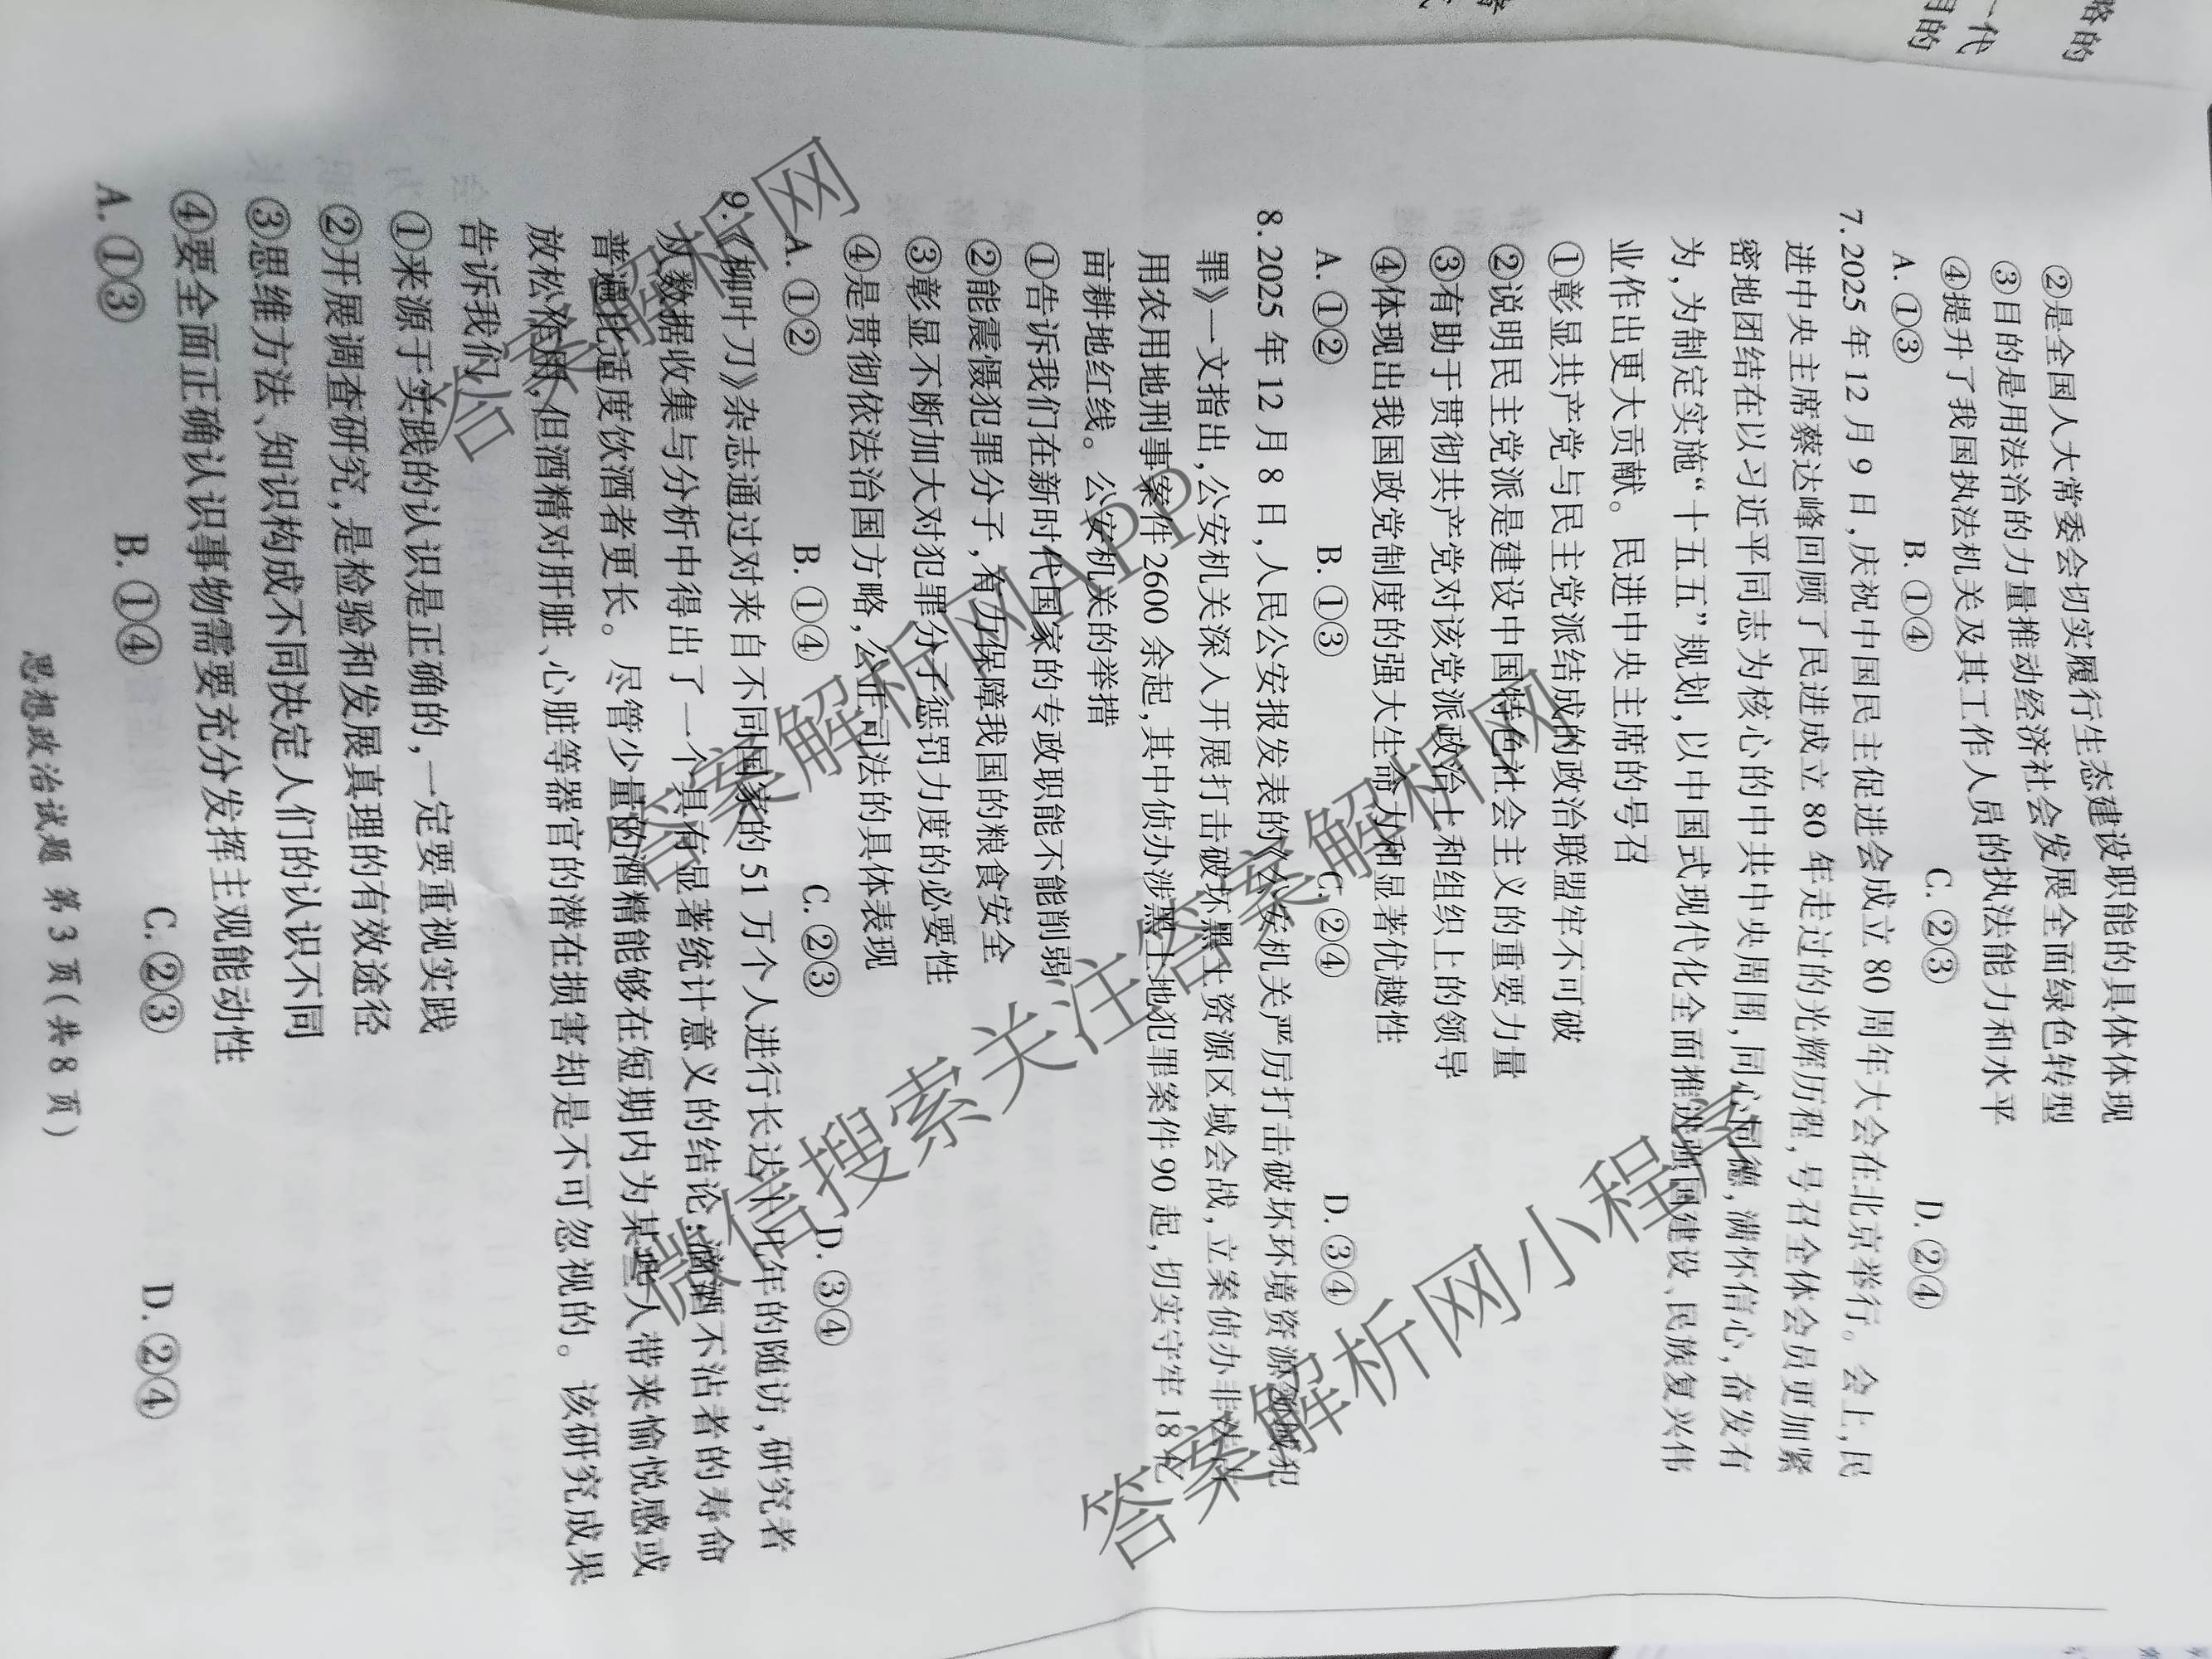 略的
一代
目的
②是全国人大常委会切实履行生态建设职能的具体体现
③目的是用法治的力量推动经济社会发展全面绿色转型
④提升了我国执法机关及其工作人员的执法能力和水平
A. ①③ B. ①④ C. ②③ D. ②④
7. 2025 年 12 月 9 日,庆祝中国民主促进会成立 80 周年大会在北京举行。会上,民
进中央主席蔡达峰回顾了民进成立 80 年走过的光辉历程,号召全体会员更加紧
密地团结在以习近平同志为核心的中共中央周围,同心同德,满怀信心,奋发有
为,为制定实施“十五五”规划,以中国式现代化全面推进强国建设、民族复兴伟
业作出更大贡献。民进中央主席的号召
①彰显共产党与民主党派结成的政治联盟牢不可破
②说明民主党派是建设中国特色社会主义的重要力量
③有助于贯彻共产党对该党派政治上和组织上的领导
④体现出我国政党制度的强大生命力和显著优越性
A. ①② B. ①③ C. ②④ D. ③④
8. 2025 年 12 月 8 日,人民公安报发表的《公安机关严厉打击破坏环境资源领域犯
罪》一文指出,公安机关深入开展打击破坏黑土资源区域会战,立案侦办非法占
用农用地刑事案件 2600 余起,其中侦办涉黑土地犯罪案件 90 起,切实守牢 18 亿
亩耕地红线。公安机关的举措
①告诉我们在新时代国家的专政职能不能削弱
②能震慑犯罪分子,有力保障我国的粮食安全
③彰显不断加大对犯罪分子惩罚力度的必要性
④是贯彻依法治国方略,公正司法的具体表现
A. ①② B. ①④ C. ②③ D. ③④
9.《柳叶刀》杂志通过对来自不同国家的 51 万个人进行长达十几年的随访,研究者
从数据收集与分析中得出了一个具有显著统计意义的结论:滴酒不沾者的寿命
普遍比适度饮酒者更长。尽管少量的酒精能够在短期内为某些人带来愉悦感或
放松作用,但酒精对肝脏、心脏等器官的潜在损害却是不可忽视的。该研究成果
告诉我们
①来源于实践的认识是正确的,一定要重视实践
②开展调查研究,是检验和发展真理的有效途径
③思维方法、知识构成不同决定人们的认识不同
④要全面正确认识事物需要充分发挥主观能动性
A. ①③ B. ①④ C. ②③ D. ②④
思想政治试题 第 3 页(共 8 页)
答案解析网
答案解析网APP
微信搜索关注答案解析网
答案解析网小程序